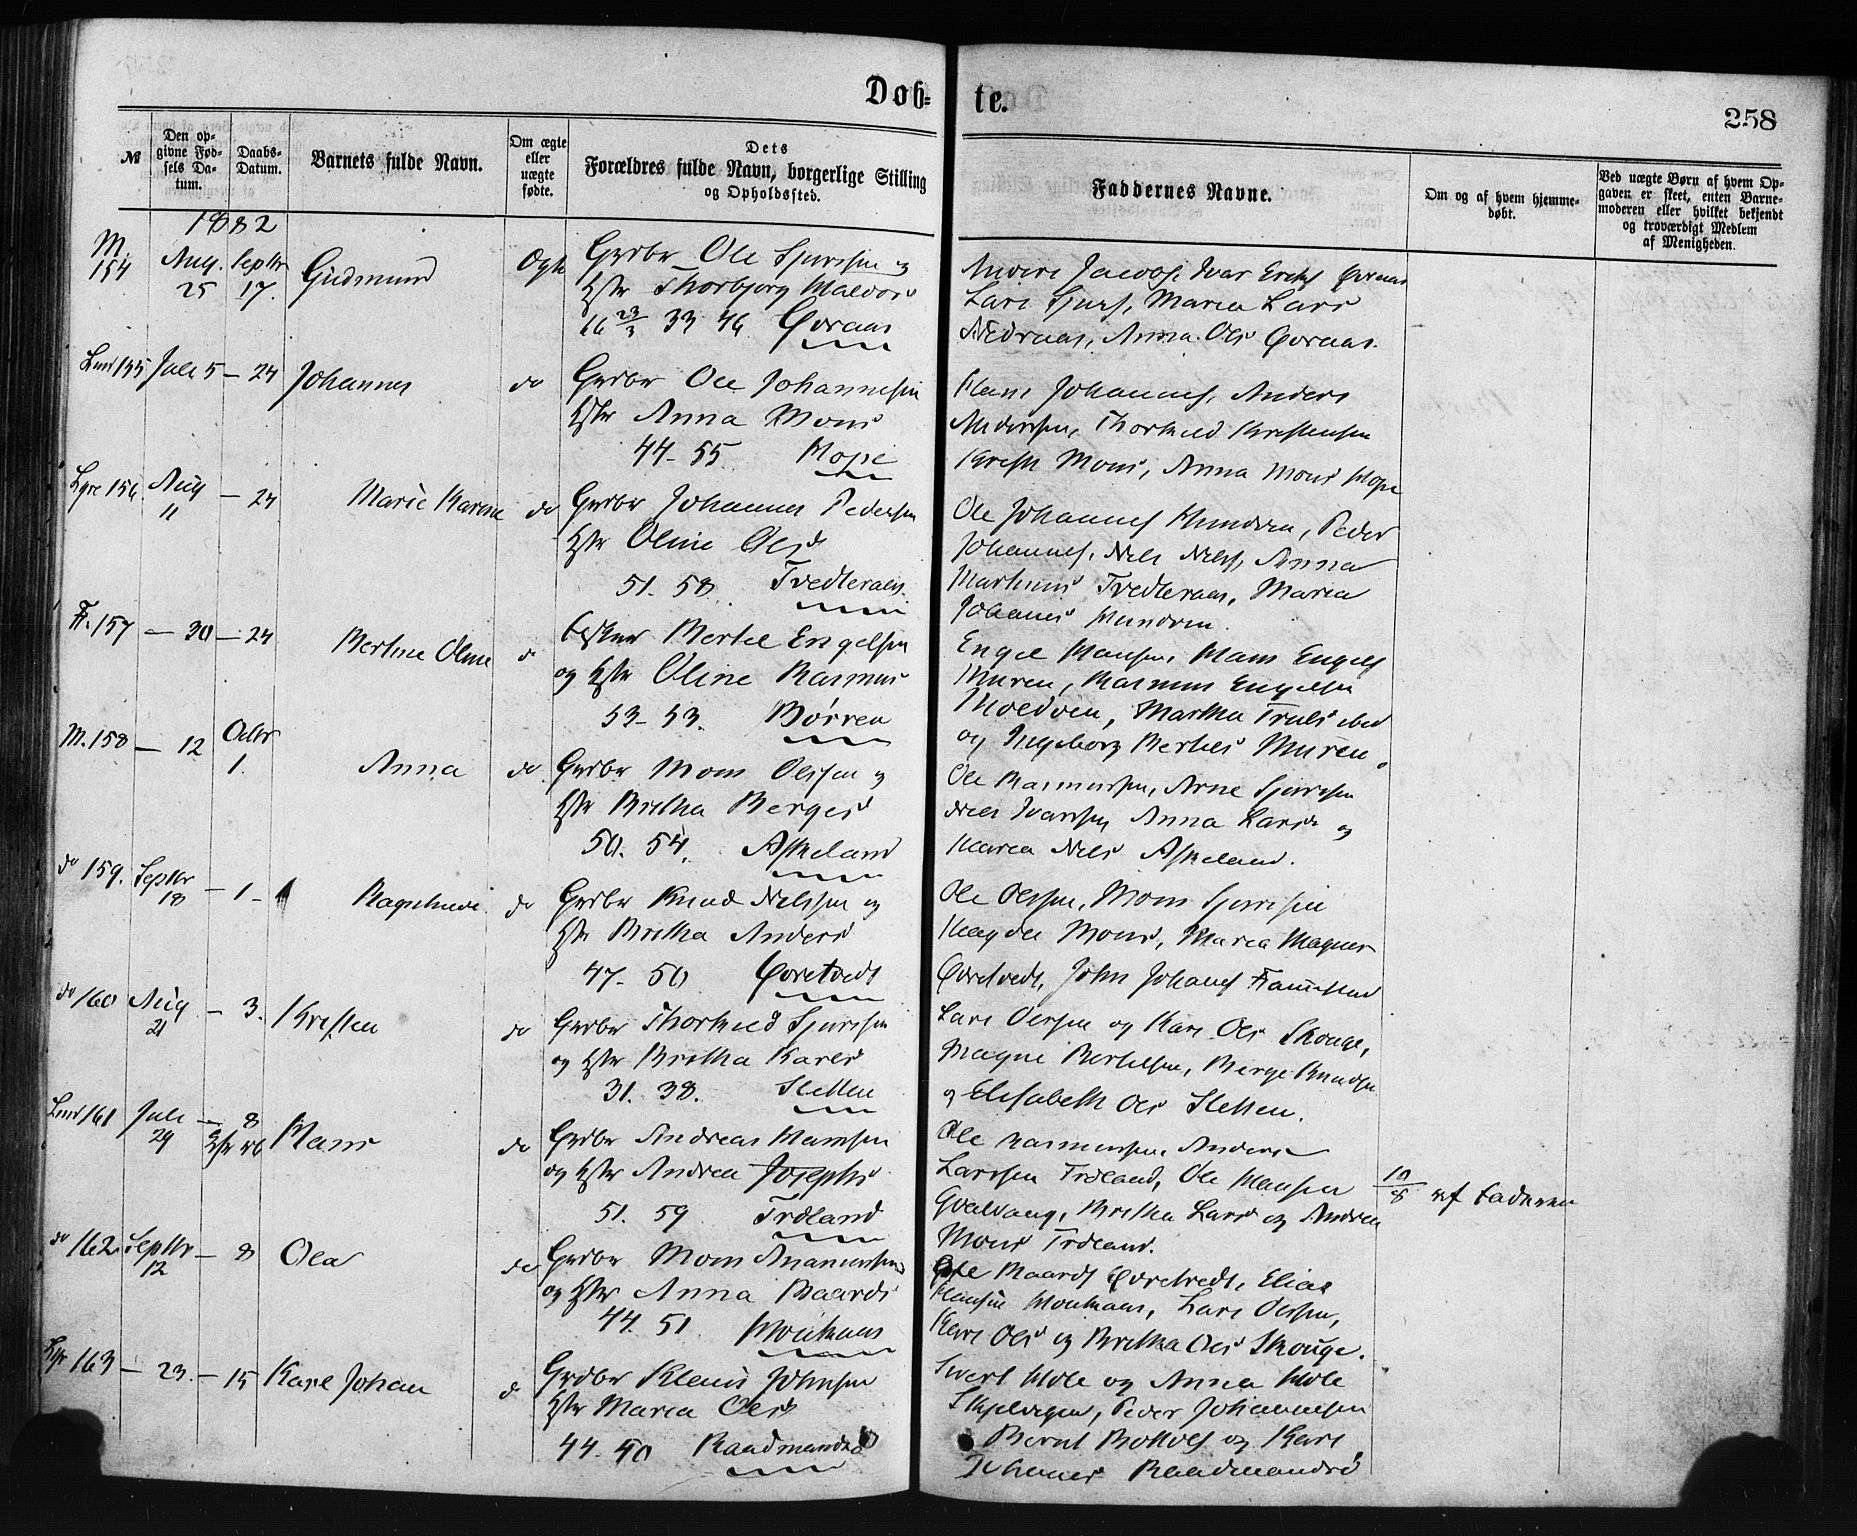 Døb-
te.
258
№
Den op-
givne Fød-
sels Da-
tum.
Daabs-
Datum.
Barnets fulde Navn.
Om ægte
eller
uægte
fødte.
Dets
Forældres fulde Navn, borgerlige Stilling
og Opholdssted.
Faddernes Navne.
Om og af hvem hjemme-
døbt.
Ved uægte Børn af hvem Op-
gaven er skeet, enten Barne-
moderen eller hvilket bekjendt
og troværdigt Medlem
af Menigheden.
1882
M. 154 Aug. 25 Septbr 17. Gudmund Ægte
Grdbr Ole Sjursen og
Hstr Thorbjørg Haldors
16 23/3 33 46 Øvraas
Lars Sjurs, Maria Lars
Nedraas, Anna Ols Øvraas.
155 Juli 5 – 24 Johannes do
Grdbr Ole Johannesen
Hstr Anna Mons
44-55 Hope
Hans Johannes, Anders
Andersen, Thorkild Kristensen
Mons, Anna Mons Hope
156 Aug 11 – 24 Marie Karine do
Grdbr Johannes Pedersen
Hstr Oline Olsd
51. 58 Tvedteraas.
Ole Johannes Hundven, Peder
Johannes, Nils Nils, Anna
Martinus Tvedteraas, Maria
Johannes Hundven.
157 – 30 – 24 Bertine Oline do
Bertel Engelsen
og Hstr Oline Rasmus
53-53. Børren
Engel Hansen, Hans Engels
Muren, Rasmus Engelsen
Martha Truls ibid
og Ingeborg Bertels Muren.
M. 158 – 12 Octbr 1. Anna do
Grdbr Mons Olsen og
Hstr Britha Berges
50. 54. Askeland
Ole Rasmussen, Arne Sjursen
Nils Ivarsen, Anna Lars og
Maria Nils Askeland.
do 159. Septbr 18 – 1 – Ragnhilde do
Grdbr Knud Nilssen og
Hstr Britha Anders
47. 50 Øvretvedt
Ole Olsen, Mons Sjursen
Mons, Maria Magnes
Øvretvedt, John Johans
do 160 Aug 21 – 3. Kristen do
Grdbr Thorkild Sjursen
og Hstr Britha Karls
31. 38. Sletten
Lars Olsen og Kari Ols Skouge,
Magne Bertelsen, Berge Knudsen
og Elisabeth Ols Sletten.
161 Juli 29 – 8 Hans do
Grdbr Andreas Hansen
og Hstr Andrea Josephs
51. 59 Troland
Ole Rasmussen, Anders
Larssen Troland, Ole Hansen
Britha Lars og Andrea
Mons Troland.
10/8 af Faderen
do 162 Septbr 12 – 8 Ola do
Grdbr Mons
og Hstr Anna Baards
44. 51
Ole Baards Øvretvedt, Elias
Hansen Lars Olsen,
Kari Ols og Britha Ols Skouge.
163 – 23. – 15 Karl Johan do
Grdbr Klaus Johnsen
Hstr Maria Ols
44. 40 Raadmandsø
Sivert Hole og Anna Hole
Peder Johannesen
Bernt og Kari
Johannes Raadmandsø